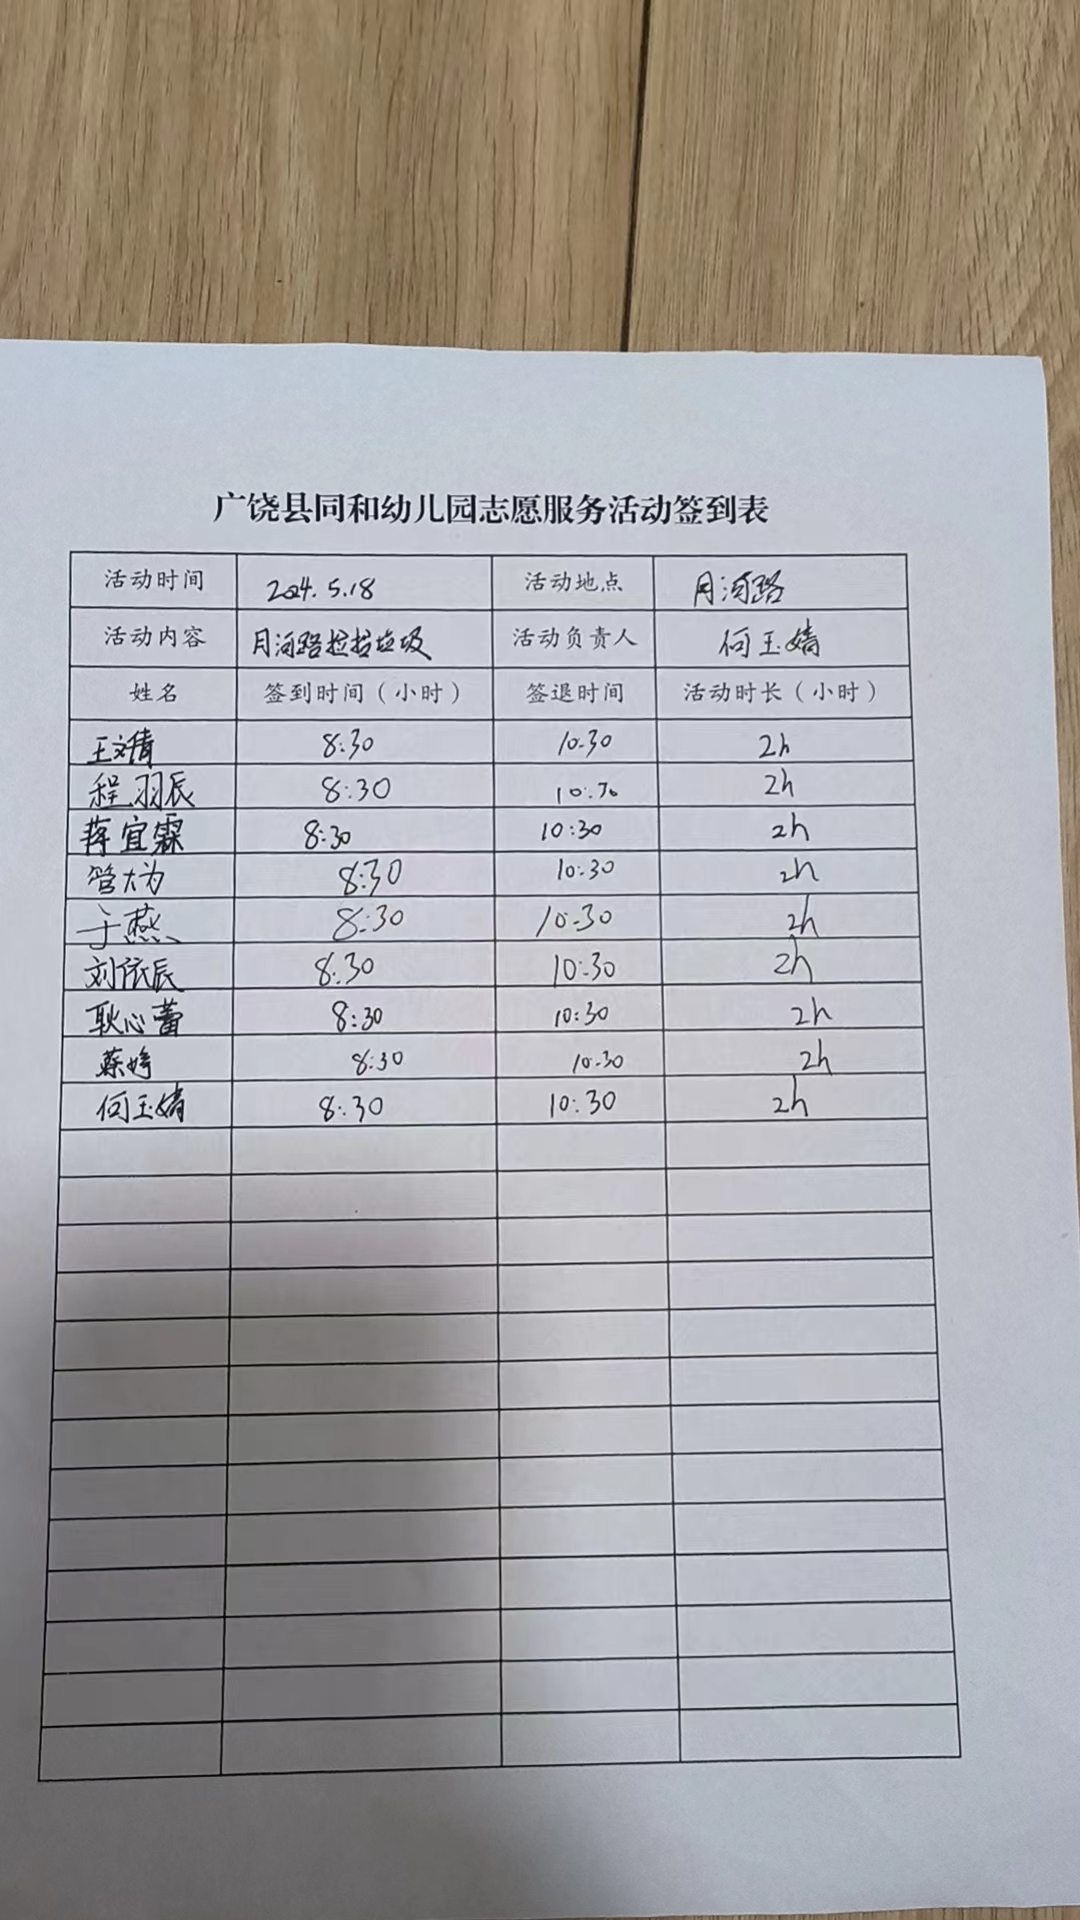 广饶县同和幼儿园志愿服务活动签到表
活动时间 2024.5.18 活动地点 月河路
活动内容 月河路捡拾垃圾 活动负责人 何玉婧
姓名 签到时间（小时） 签退时间 活动时长（小时）
王文倩 8:30 10:30 2h
程羽辰 8:30 10:30 2h
蒋宜霖 8:30 10:30 2h
管大为 8:30 10:30 2h
于燕 8:30 10:30 2h
刘依辰 8:30 10:30 2h
耿心蕾 8:30 10:30 2h
8:30 10:30 2h
何玉婧 8:30 10:30 2h